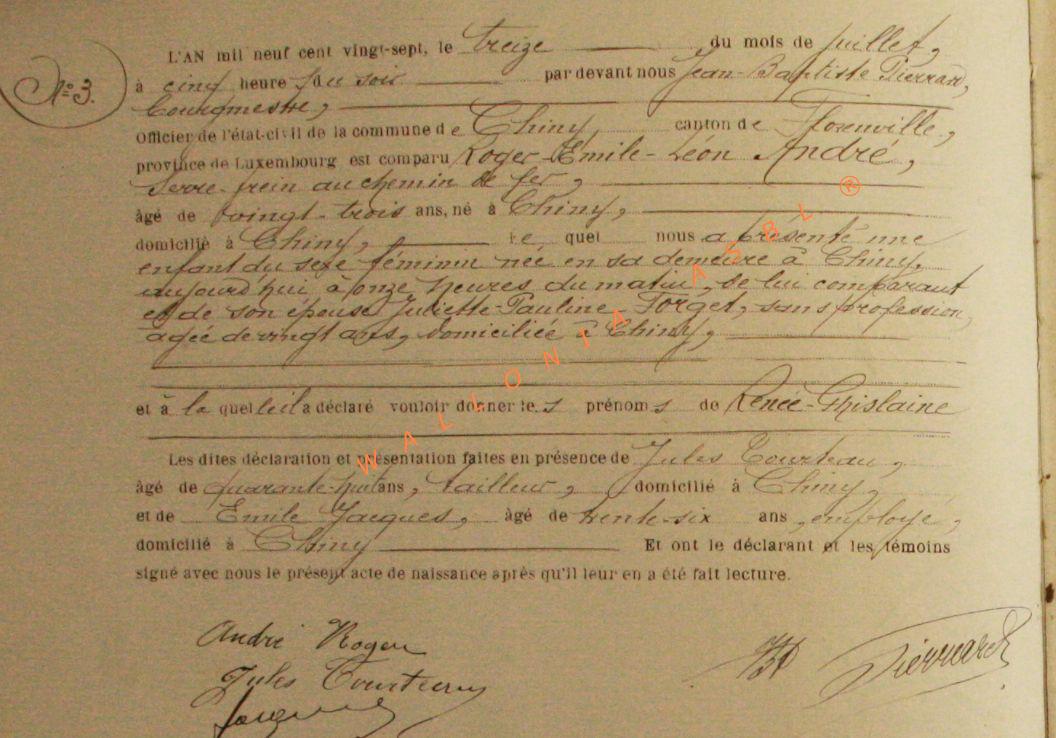 N° 3.
L'AN mil neuf cent vingt-sept, le treize du mois de juillet,
à cinq heure s du soir par devant nous Jean-Baptiste Pierrard,
bourgmestre,
Officier de l'état-civil de la commune de Chiny, canton de Florenville,
province de Luxembourg est comparu Roger-Emile-Léon André,
Serre-frein au chemin de fer,
âgé de vingt-trois ans, né à Chiny,
domicilié à Chiny, le quel nous a présenté une
enfant du sexe féminin née en sa demeure à Chiny,
aujourd'hui à onze heures du matin, de lui comparant
et de son épouse Juliette-Pauline Forget, sans profession,
âgée de vingt ans, domiciliée à Chiny,
et à la quelle il a déclaré vouloir donner les prénoms de Renée-Ghislaine
Les dites déclaration et présentation faites en présence de Jules
âgé de quarante-huit ans, tailleur, domicilié à Chiny,
et de Emile Jacques, âgé de trente-six ans, employé,
domicilié à Chiny Et ont le déclarant et les témoins
signé avec nous le présent acte de naissance après qu'il leur en a été fait lecture.
André Roger
Jules
Jacques
Pierrard
WALLONIA ASBL ®